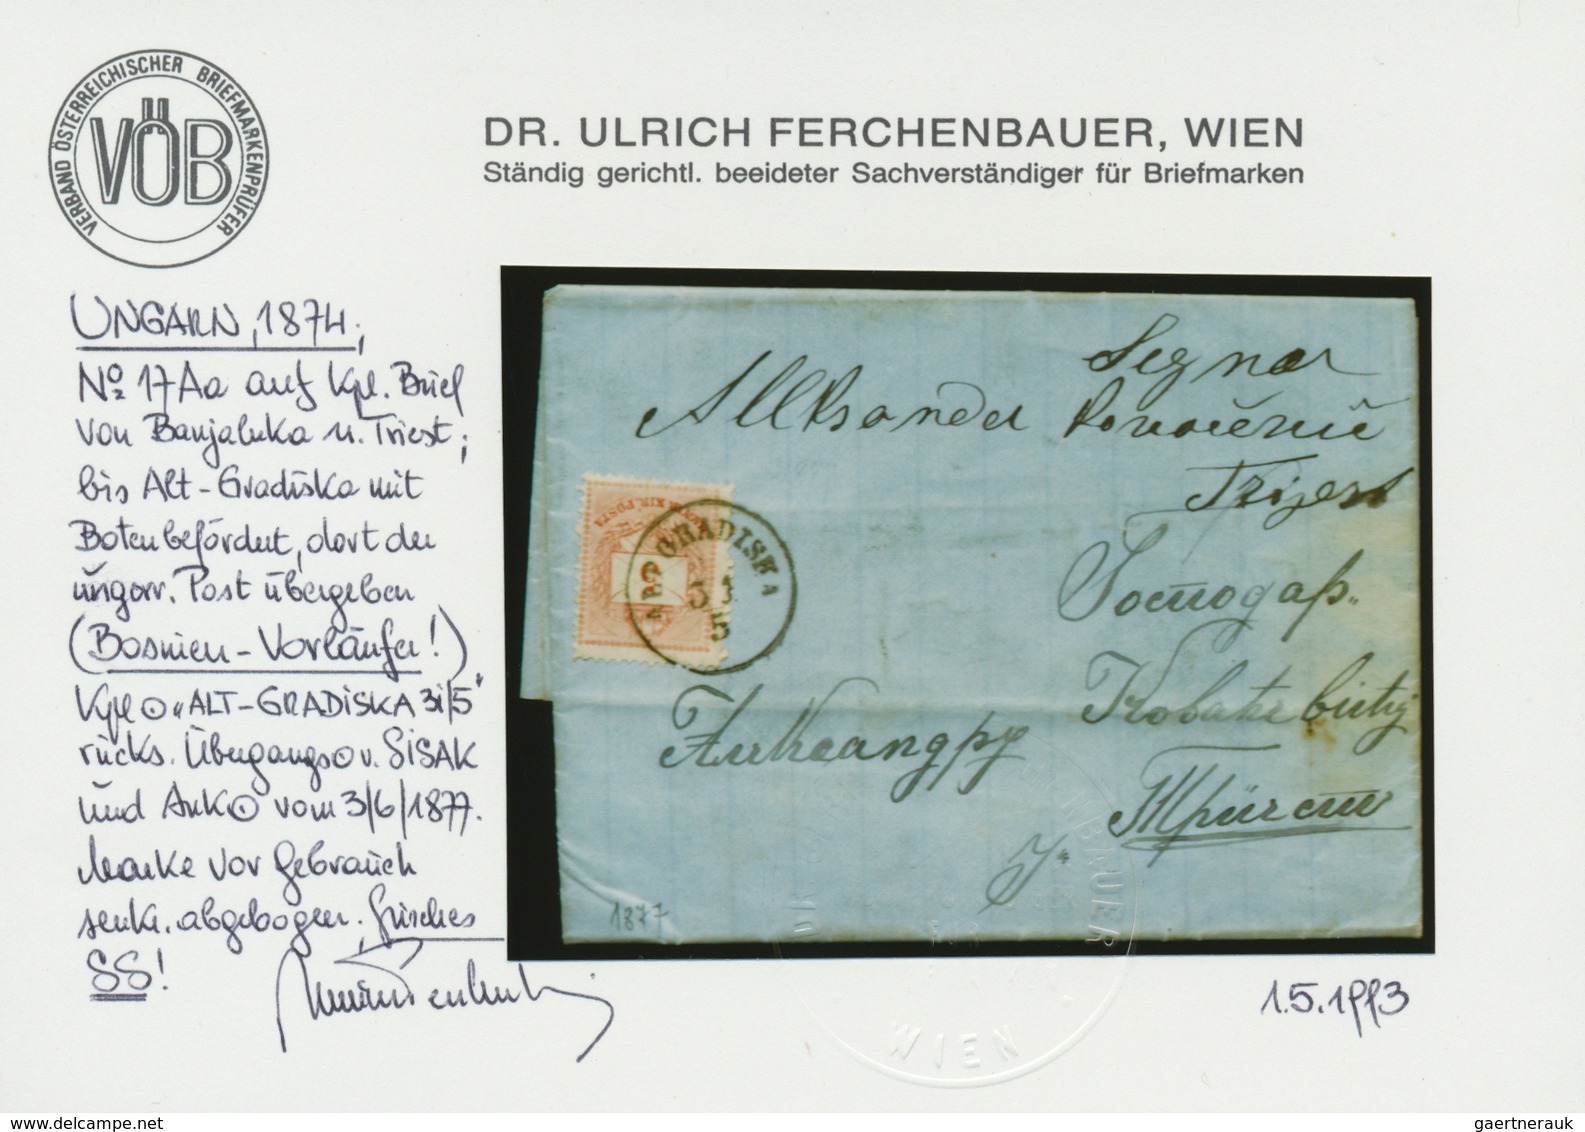 VERBAND ÖSTERREICHISCHER BRIEFMARKENPRÜFER
VÖB
DR. ULRICH FERCHENBAUER, WIEN
Ständig gerichtl. beeideter Sachverständiger für Briefmarken
UNGARN, 1874,
No 17Aa auf kpl. Brief
von Banjaluka n. Triest;
bis Alt-Gradiska mit
Boten befördert, dort der
ungar. Post übergeben
(Bosnien-Vorläufer!)
Kpl ⊙ "ALT-GRADISKA 31/5"
rücks. Übergangs⊙ v. SISAK
und Ank⊙ vom 3/6/1877.
Marke vor Gebrauch
senkr. abgebogen. frisches
SS!
Segnor
Alleksander
Triest
MAGYAR KIR. POSTA
GRADISKA
31
5
Господар
Александру
У
1877
BAUER
WIEN
DR
1.5.1993
gaertnerauk